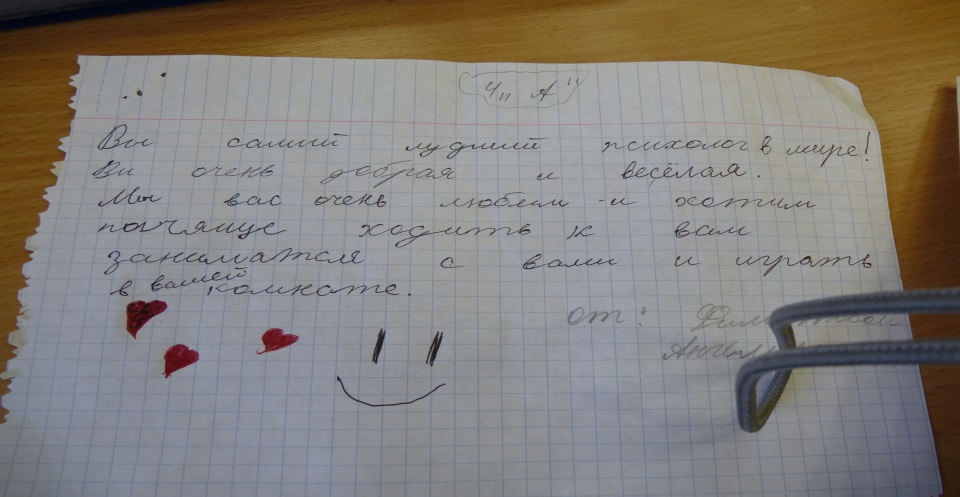 4 „ А "
Вы самий лудший психолог в мире!
Ви очень добрая и весёлая.
Мы вас очень любим и хотим
почяще ходить к вам
заниматся с вами и играть
в вашей комнате.
от: